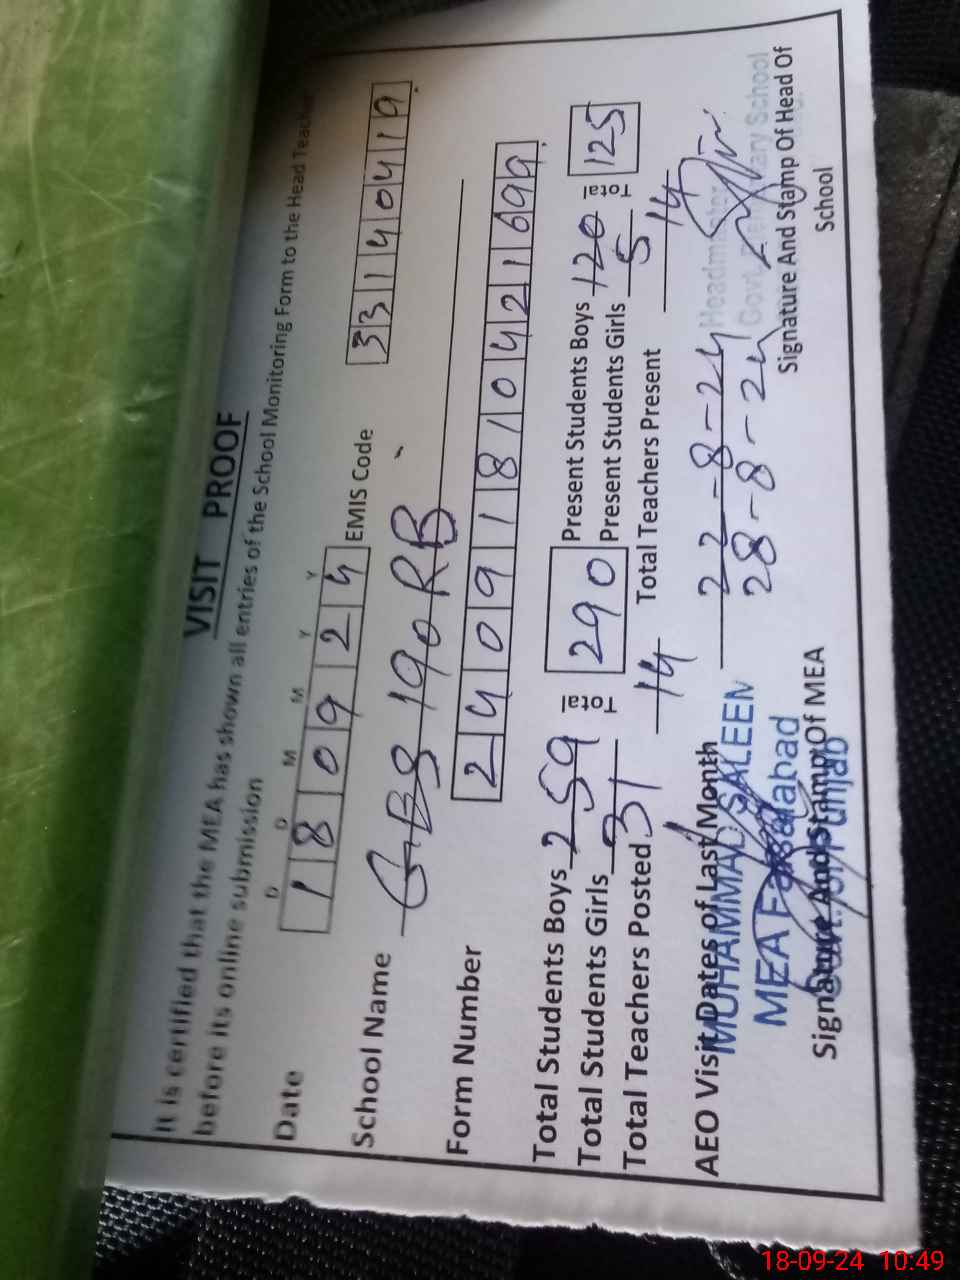 VISIT PROOF
It is certified that the MEA has shown all entries of the School Monitoring Form to the Head Teacher
before its online submission
D D M M Y Y
Date 1 8 0 9 2 4 EMIS Code 3 3 1 4 0 4 1 9
School Name GBS 190 RB
Form Number 2 4 0 9 1 8 1 0 4 2 1 6 9 9
Total Students Boys 259 Total 290 Present Students Boys 120 Total 125
Total Students Girls 31 Present Students Girls 5
Total Teachers Posted 14 Total Teachers Present 14
AEO Visit Dates of Last Month 22-8-24
28-8-24
MUHAMMAD SALEEN
MEA Faisalabad
Govt. of Punjab
Headmaster
Govt. Elementary School
Signature And Stamp Of MEA
Signature And Stamp Of Head Of
School
18-09-24 10:49